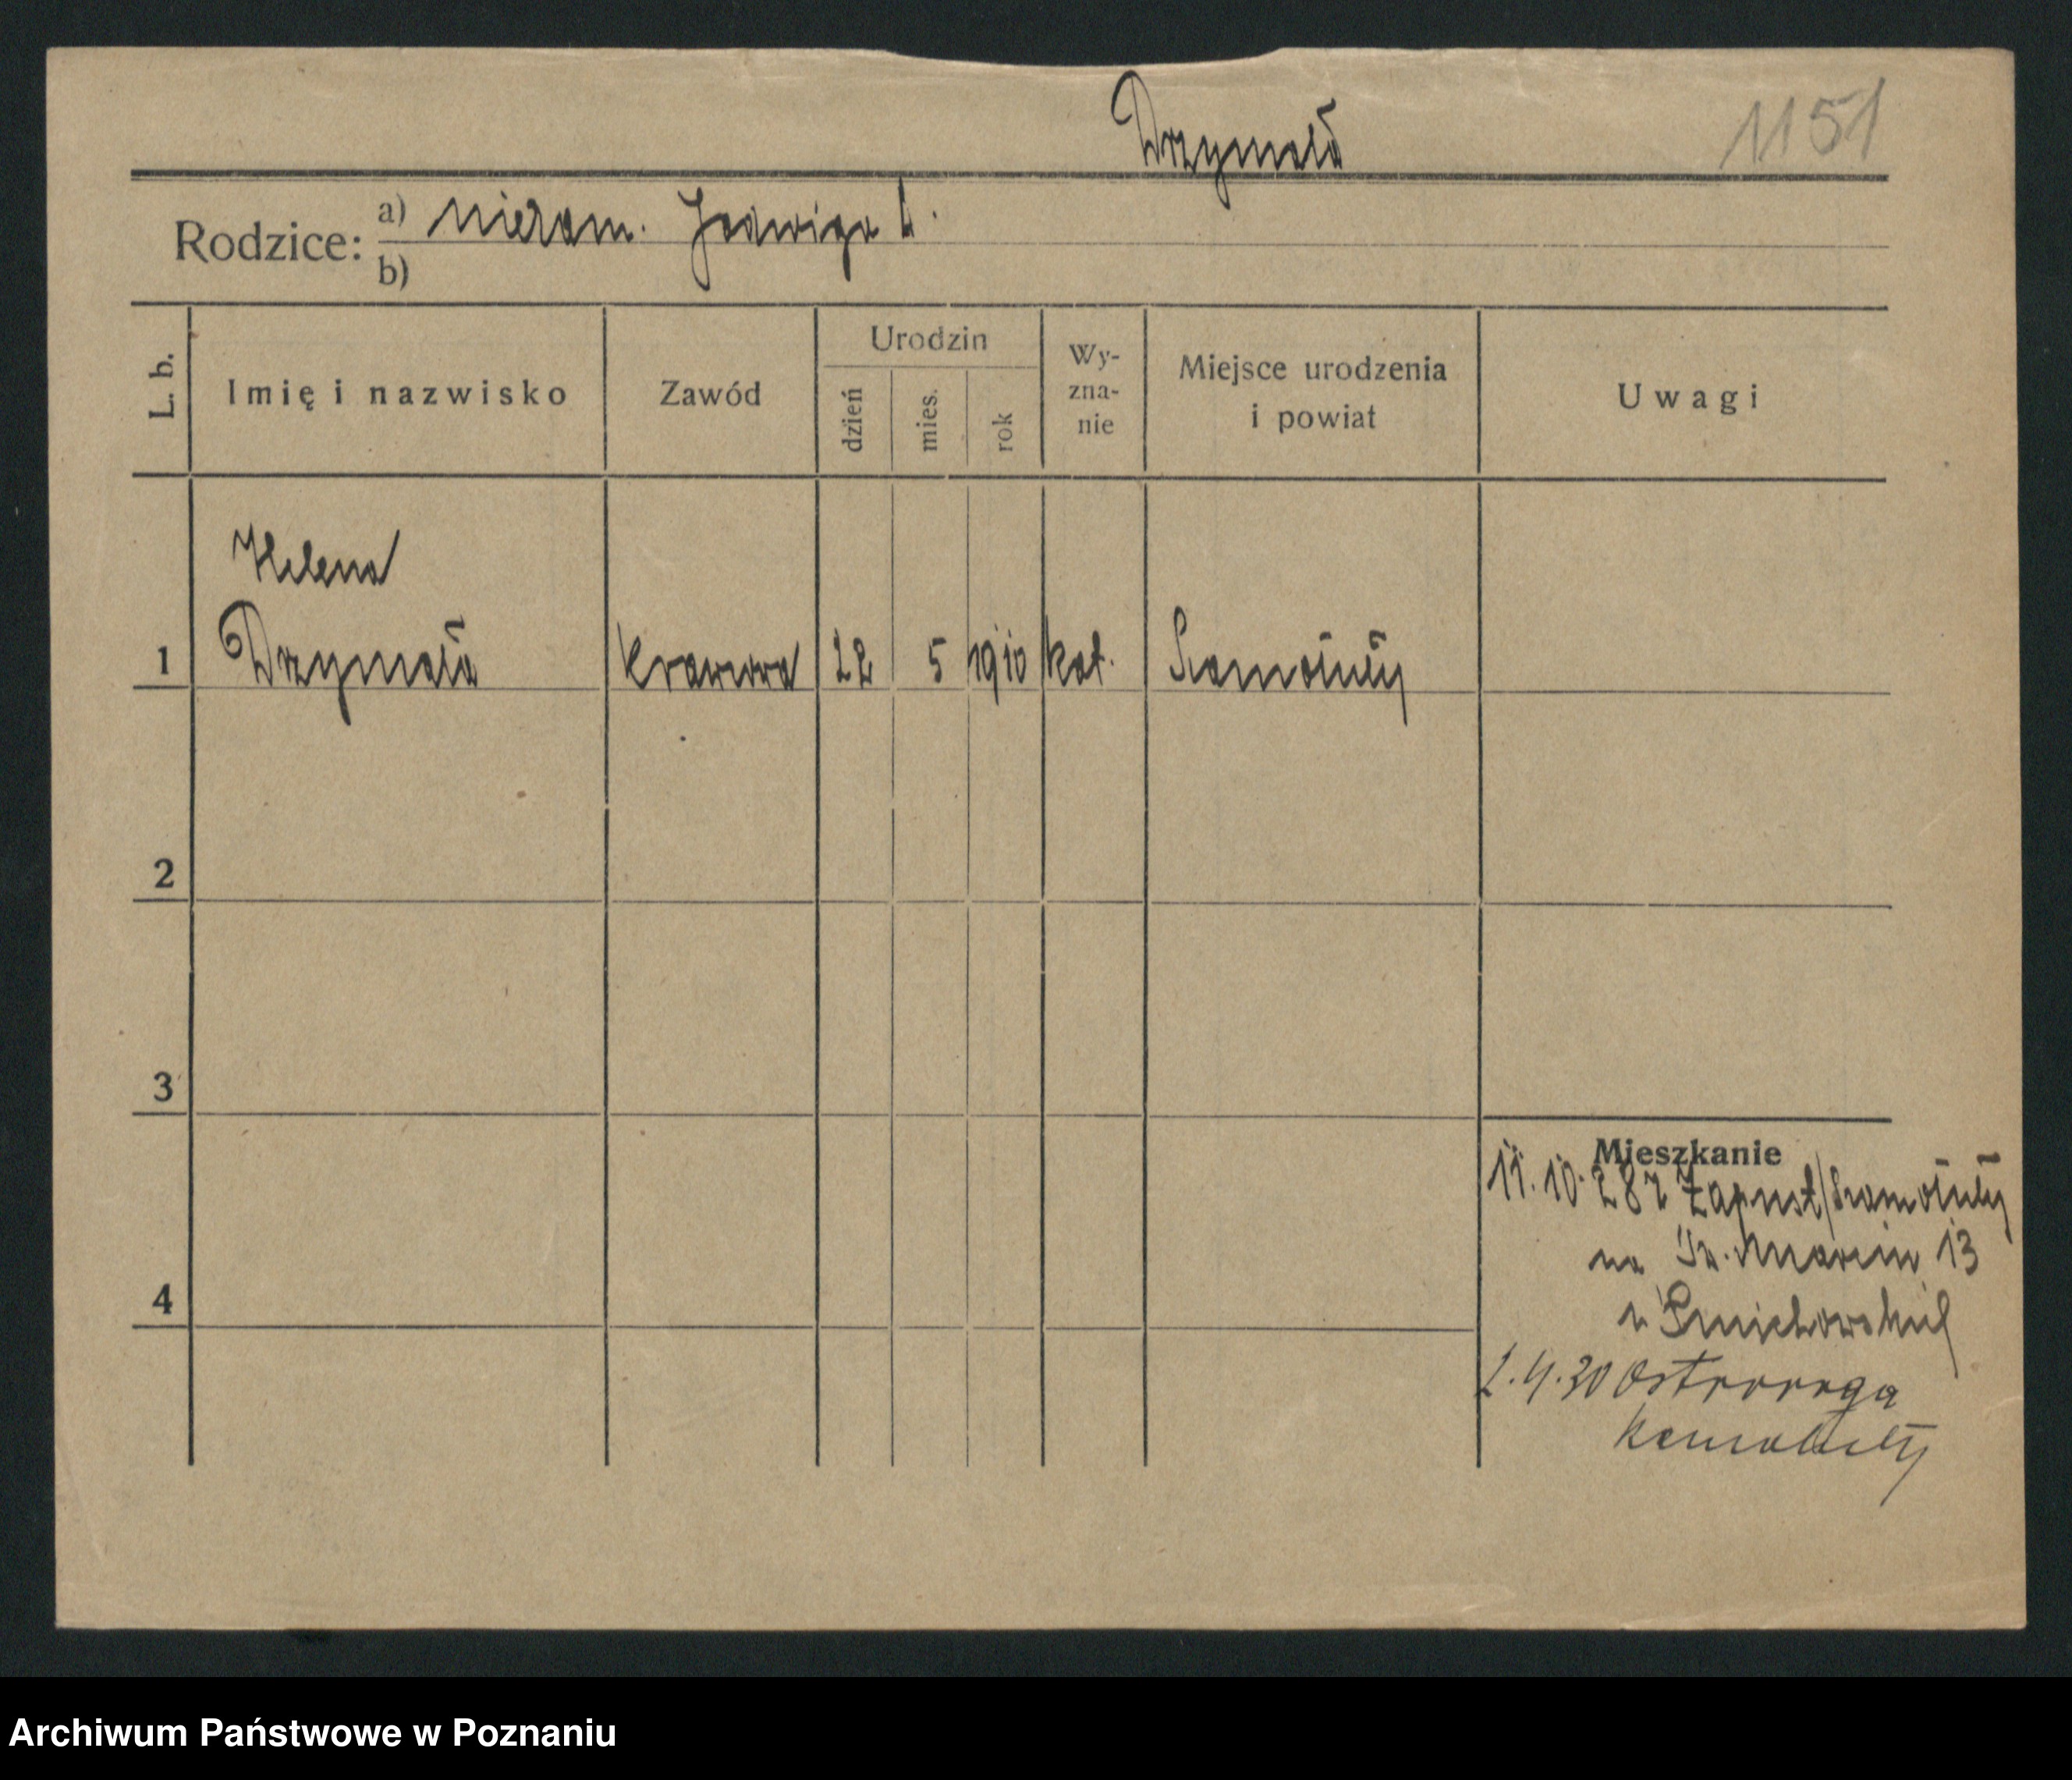 Drzymała
1151
Rodzice: a) niezam. Jadwiga D.
b)
L. b.
Imię i nazwisko
Zawód
Urodzin
dzień
mies.
rok
Wy-
zna-
nie
Miejsce urodzenia
i powiat
Uwagi
Helena
1 Drzymała krawcowa 22 5 1910 kat. Szamotuły
2
3
4
Mieszkanie
11. 10. 28 z Zapust/Szamotuły
na Św. Marcin 13
u
1.4.30 Ostroroga
Archiwum Państwowe w Poznaniu